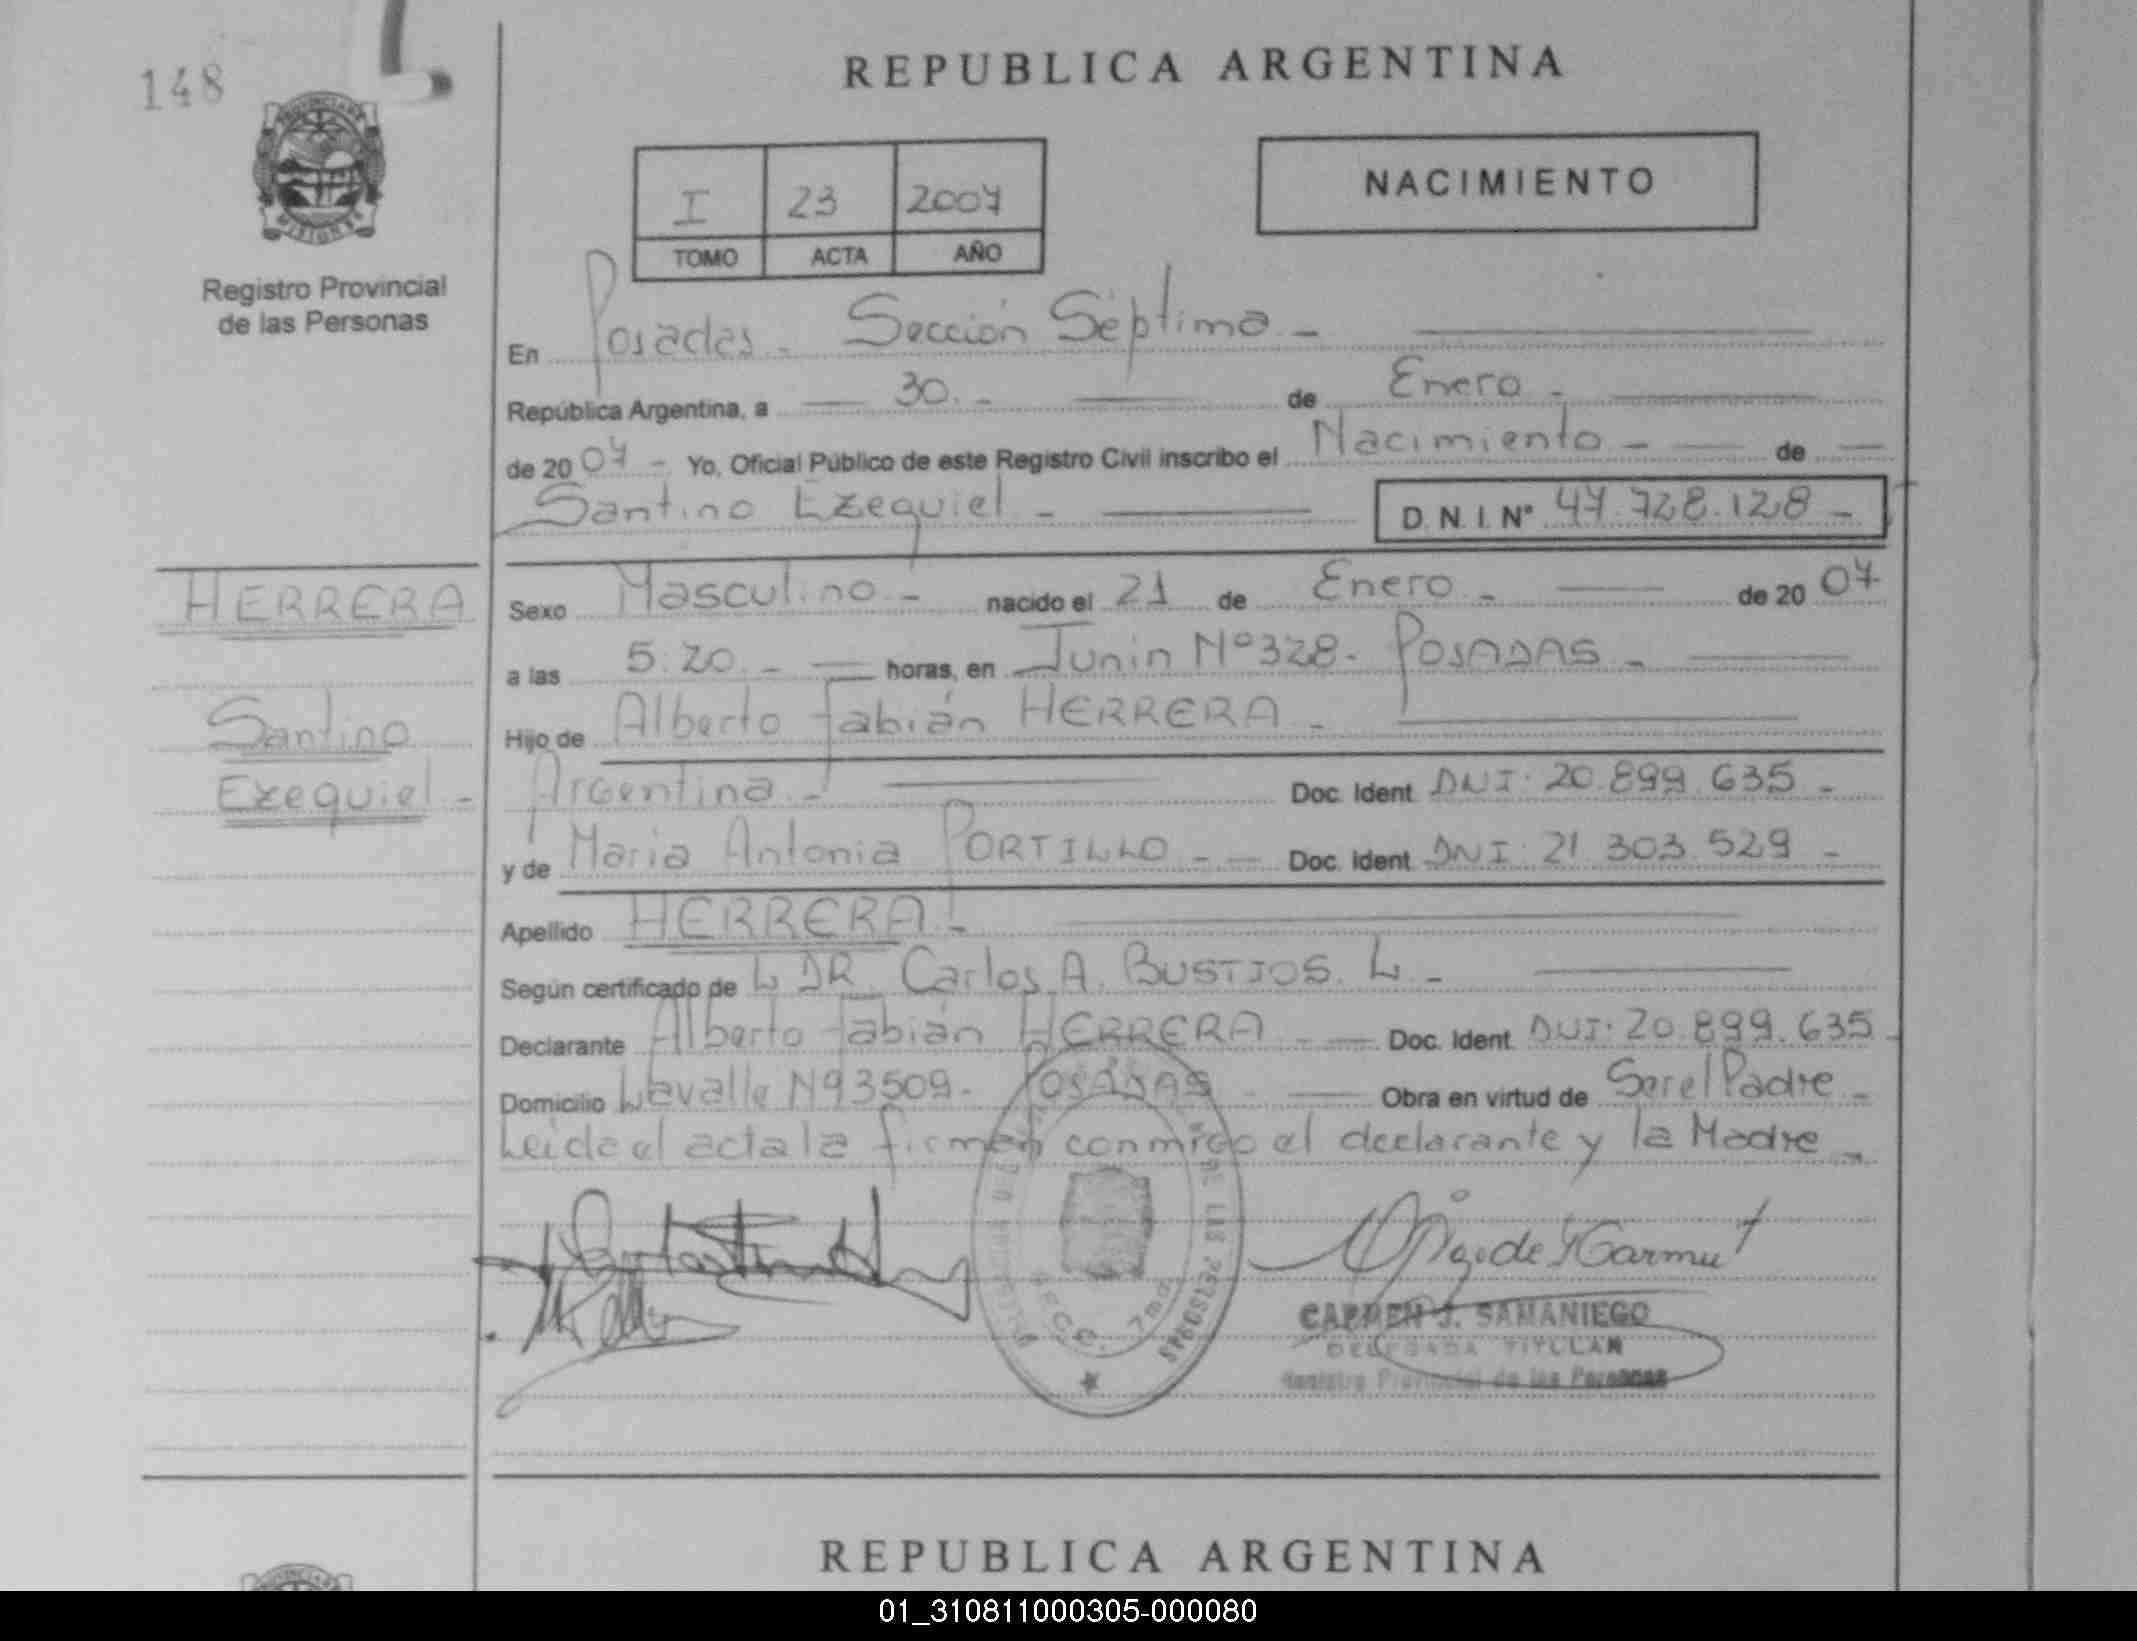 148
REPUBLICA ARGENTINA
I 23 2007
TOMO ACTA AÑO
NACIMIENTO
Registro Provincial
de las Personas
En Posadas - Sección Séptima -
República Argentina, a 30. - de Enero -
de 20 07 - Yo, Oficial Público de este Registro Civil inscribo el Nacimiento - de
Santino Ezequiel - D. N. I. N° 47.728.128 -
HERRERA
Santino
Ezequiel -
Sexo Masculino - nacido el 21 de Enero - de 20 07-
a las 5:20. - horas, en Junin Nº 328. POSADAS -
Hijo de Alberto Fabián HERRERA -
Argentina - Doc. Ident DNI: 20.899.635 -
y de Maria Antonia PORTILLO - Doc. Ident DNI: 21.303.529 -
Apellido HERRERA -
Según certificado de DR. Carlos A. BUSTJOS. -
Declarante Alberto Fabián HERRERA - Doc. Ident. DNI: 20.899.635 -
Domicilio Lavalle Nº 3509 - POSADAS - Obra en virtud de Ser el Padre -
Leida el acta la firman conmigo el declarante y la Madre -
DE LAS PERSONAS
7ma
CARMEN J. SAMANIEGO
DELEGADA TITULAR
Registro Provincial de las Personas
REPUBLICA ARGENTINA
01_310811000305-000080